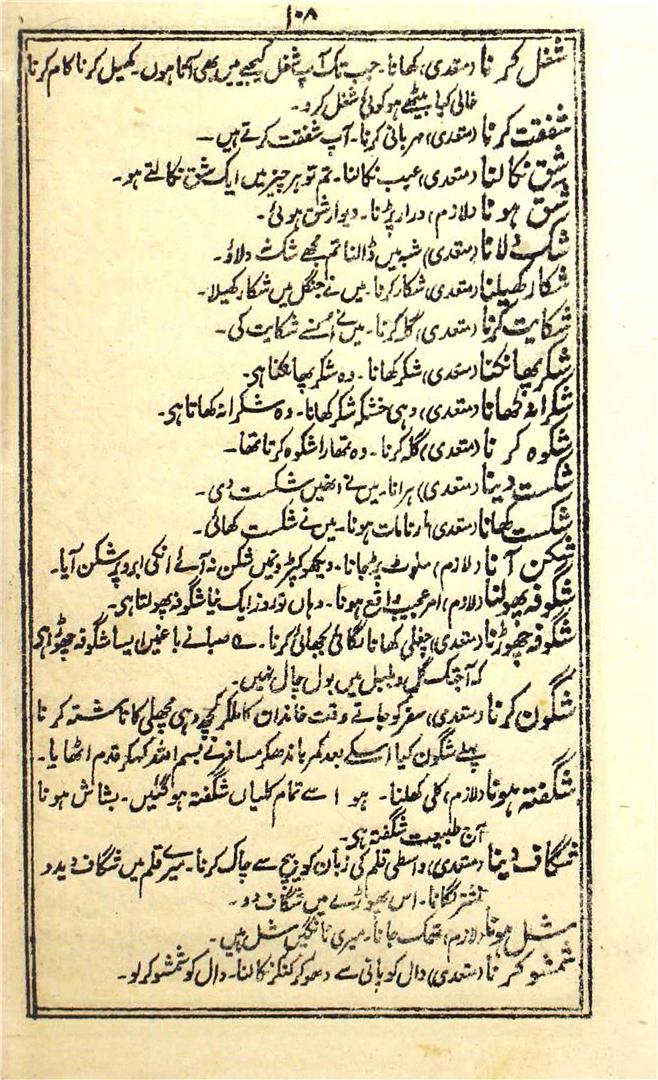 ۱۰۸
شغل کرنا (متعدی) کھانا۔ جب تک آپ شغل کیجیے میں بھی آتا ہوں۔ کھیل کرنا کام کرنا
خالی کیا بیٹھے ہو کوئی شغل کرو۔
شفقت کرنا (متعدی) مہربانی کرنا۔ آپ شفقت کرتے ہیں۔
شق نکالنا (متعدی) عیب نکالنا۔ تم تو ہر چیز میں ایک شق نکالتے ہو۔
شق ہونا (لازم) دراڑ پڑنا۔ دیوار شق ہوئی۔
شک دلانا (متعدی) شبہ میں ڈالنا تم مجھے شک نہ دلاؤ۔
شکار کھیلنا (متعدی) شکار کرنا۔ میں نے جنگل میں شکار کھیلا۔
شکایت کرنا (متعدی) گلہ کرنا۔ میں نے اُنسے شکایت کی۔
شکر پھانکنا (متعدی) شکر کھانا۔ وہ شکر پھانکتا ہی۔
شکرانہ کھانا (متعدی) وہی خشکہ شکر کھانا۔ وہ شکرانہ کھاتا ہی۔
شکوہ کرنا (متعدی) گلہ کرنا۔ وہ تمھارا شکوہ کرتا تھا۔
شکست دینا (متعدی) ہرانا۔ میں نے انھیں شکست دی۔
شکست کھانا (متعدی) ہارنا مات ہونا۔ میں نے شکست کھائی۔
شکن آنا (لازم) سلوٹ پڑجانا۔ دیکھو کپڑونمیں شکن نہ آئے انکی ابرو پر شکن آیا۔
شگوفہ پھولنا (لازم) امر عجیب واقع ہونا۔ وہاں تو روز ایک نیا شگوفہ پھولتا ہی۔
شگوفہ چھوڑنا (متعدی) چغلی کھانا لگائی بجھائی کرنا۔ ے صبا نے باغمیں ایسا شگوفہ چھوڑا ہی
کہ آجتک گل و بلبل میں بول چال نہیں۔
شگون کرنا (متعدی) سفر کو جاتے وقت خاندان کا ملکر کچھ دہی مچھلی کا ناشتہ کرنا
پہلے شگون کیا اسکے بعد کمر باندھکر مسافر نے بسم اللہ کہکر قدم اٹھایا۔
شگفتہ ہونا (لازم) کلی کھلنا۔ ہوا سے تمام کلیاں شگفتہ ہوگئیں۔ بشاش ہونا
آج طبیعت شگفتہ ہی۔
شگاف دینا (متعدی) واسطی قلم کی زبان کو بیچ سے چاک کرنا۔ میرے قلم میں شگاف دیدو
نشتر لگانا۔ اس پھوڑے میں شگاف دو۔
شل ہونا (لازم) تھک جانا۔ میری ٹانگیں شل ہیں۔
شمشو کرنا (متعدی) دال کو پانی سے دھو کر کنکر نکالنا۔ دال کو شمشو کرلو۔